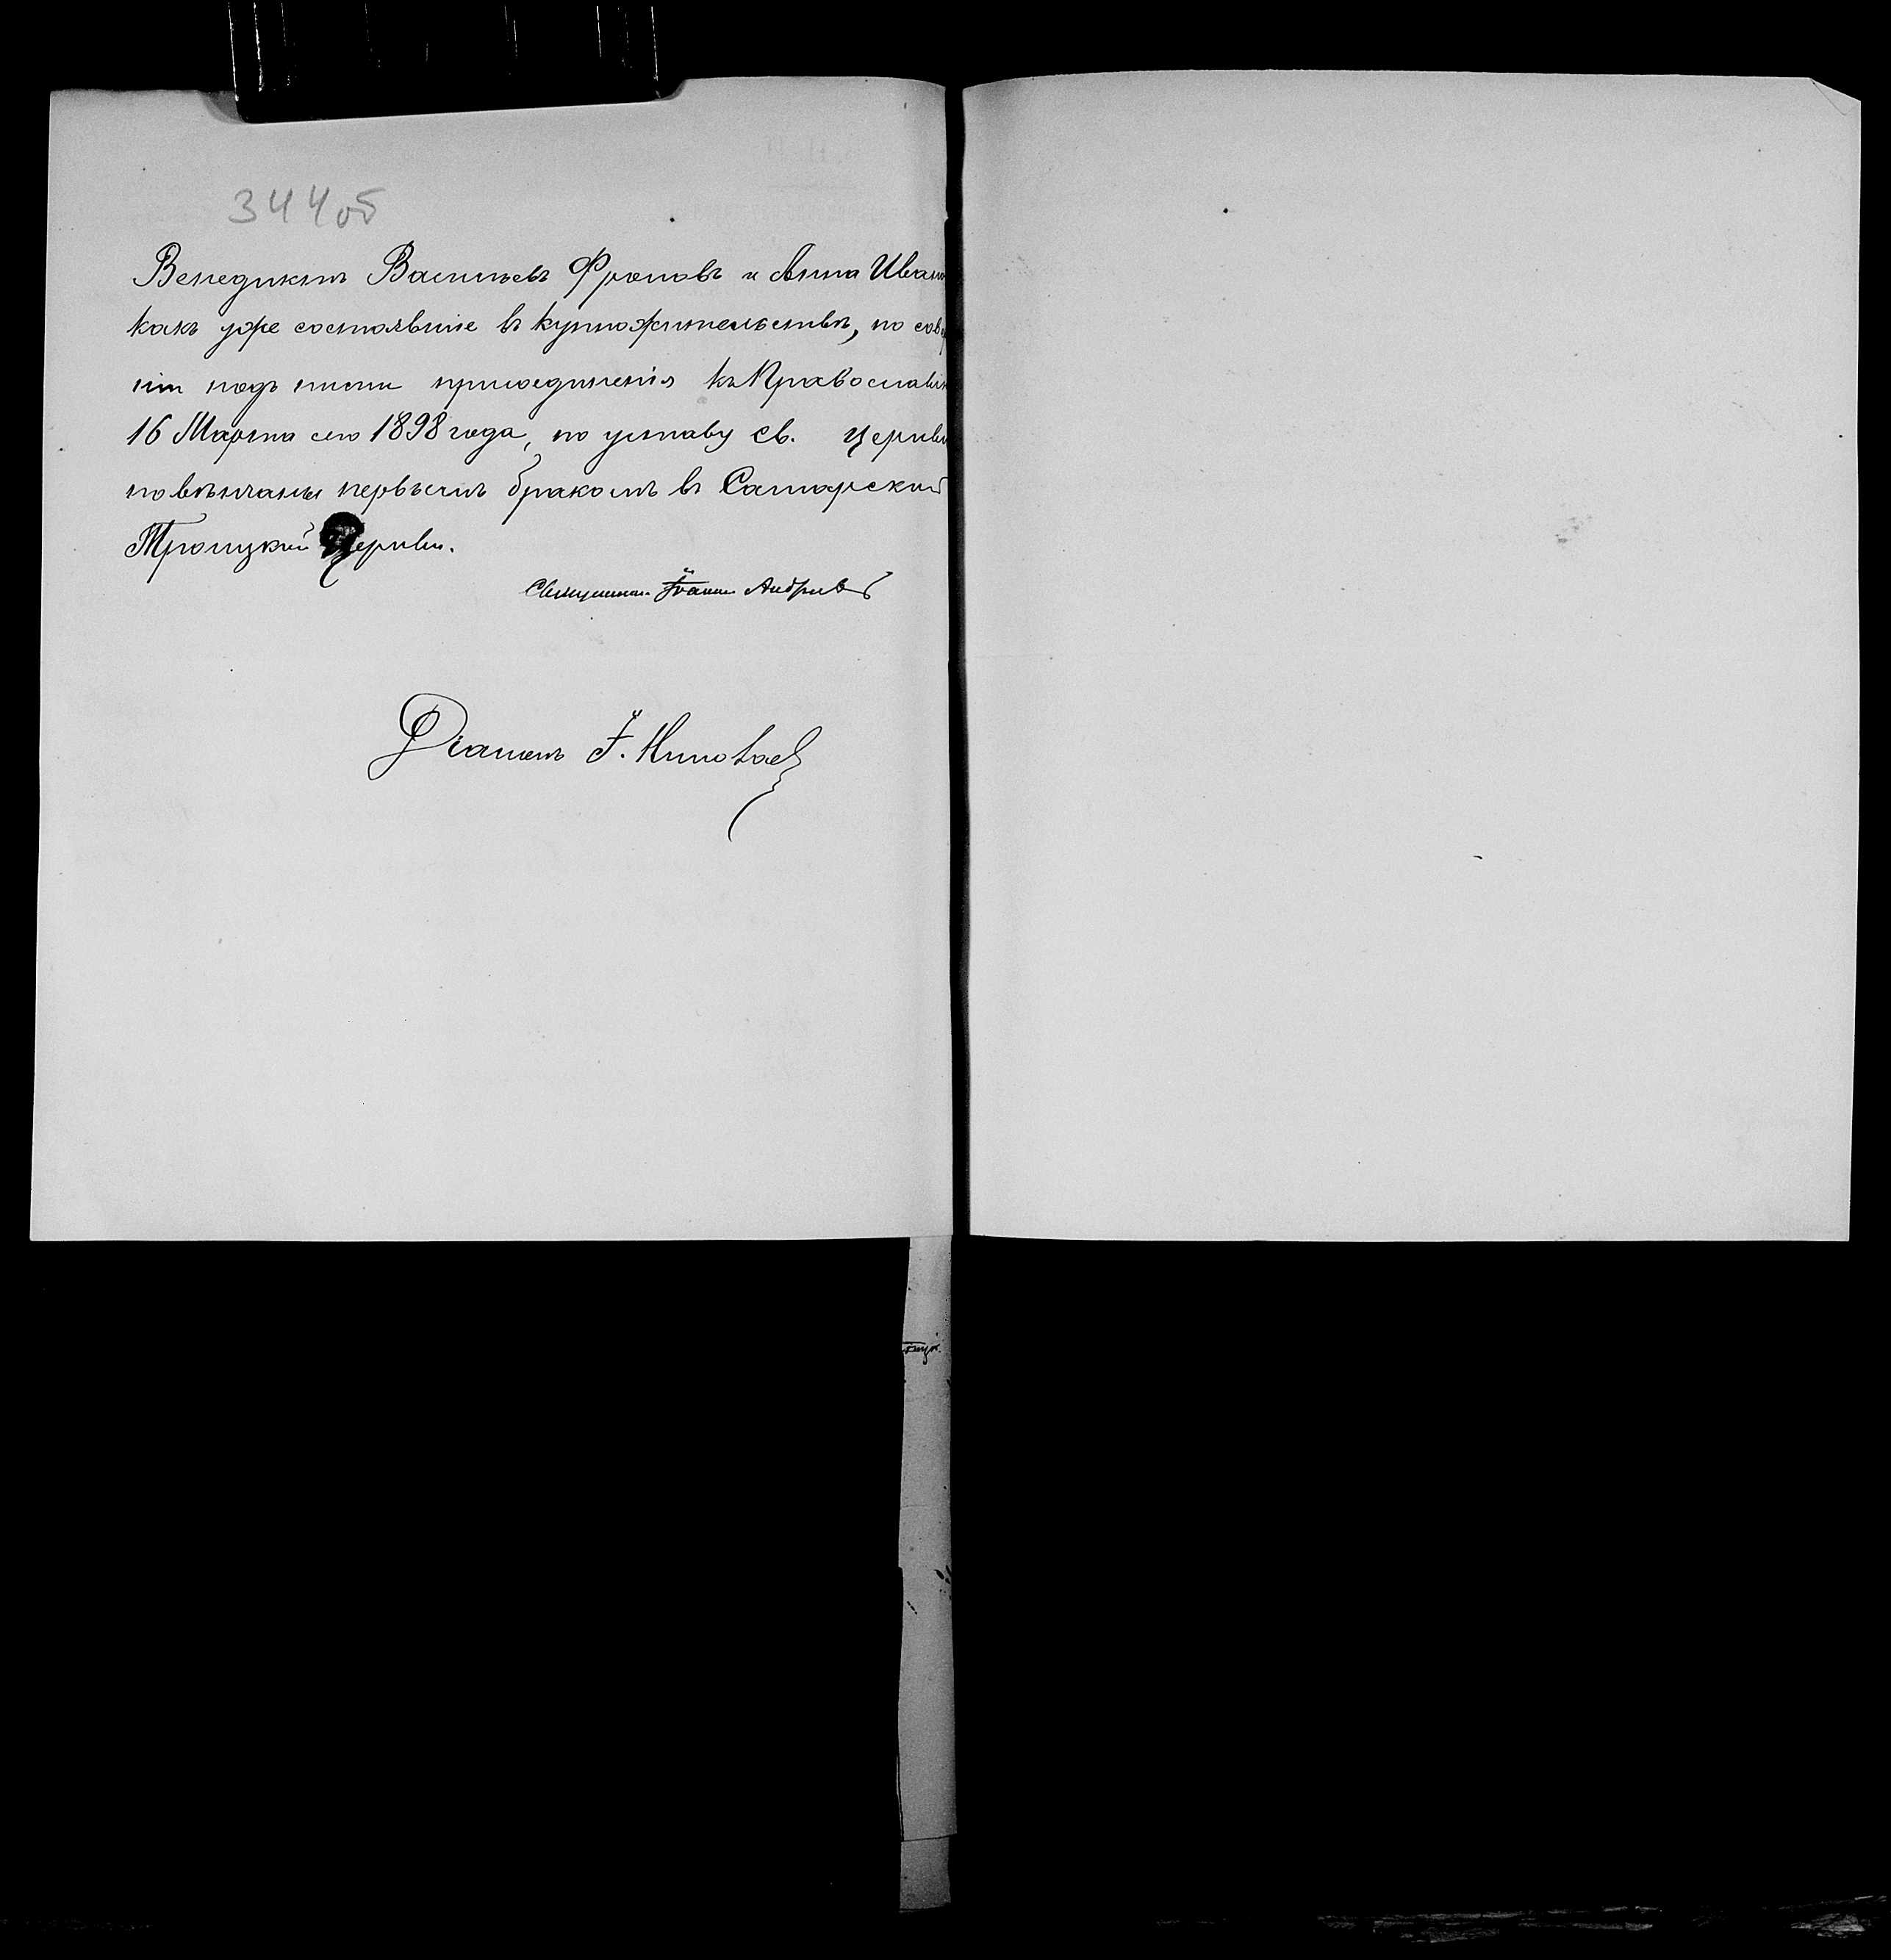 344об
Венедиктъ Васильевъ Фроловъ и Анна Иван
какъ уже состоявшіе въ купножительствѣ, по сов
ніи надъ ними присоединенія къ Православі
16 Марта сего 1898 года, по уставу св. Церкви
повѣнчаны первымъ бракомъ въ Самарской
Троицкой Церкви.
Священникъ Іоаннъ Андреевъ
Діаконъ І. Николаев